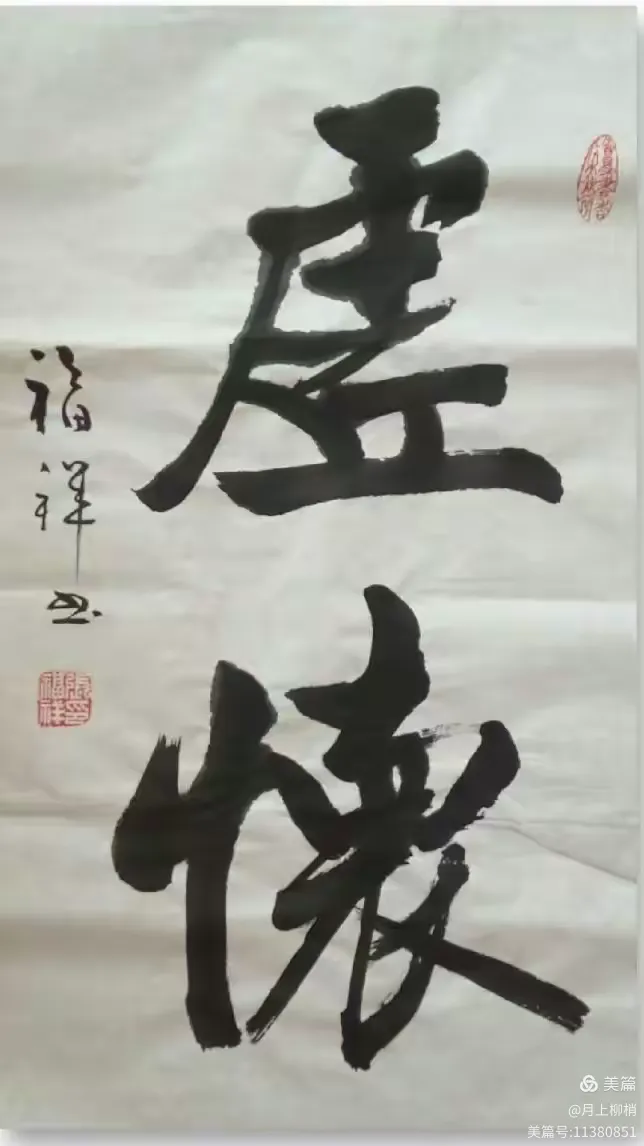 虚懷
福祥书
張福祥印
美篇
@月上柳梢
美篇号:11380851